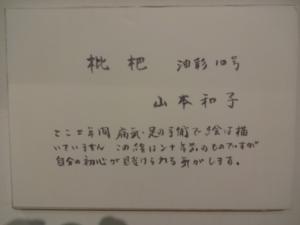 枇杷 油彩10号
山本和子
ここ二年間 病気・足の手術で絵は描
いていません この絵はン十年前のものですが
自分の初心が見受けられる気がします。